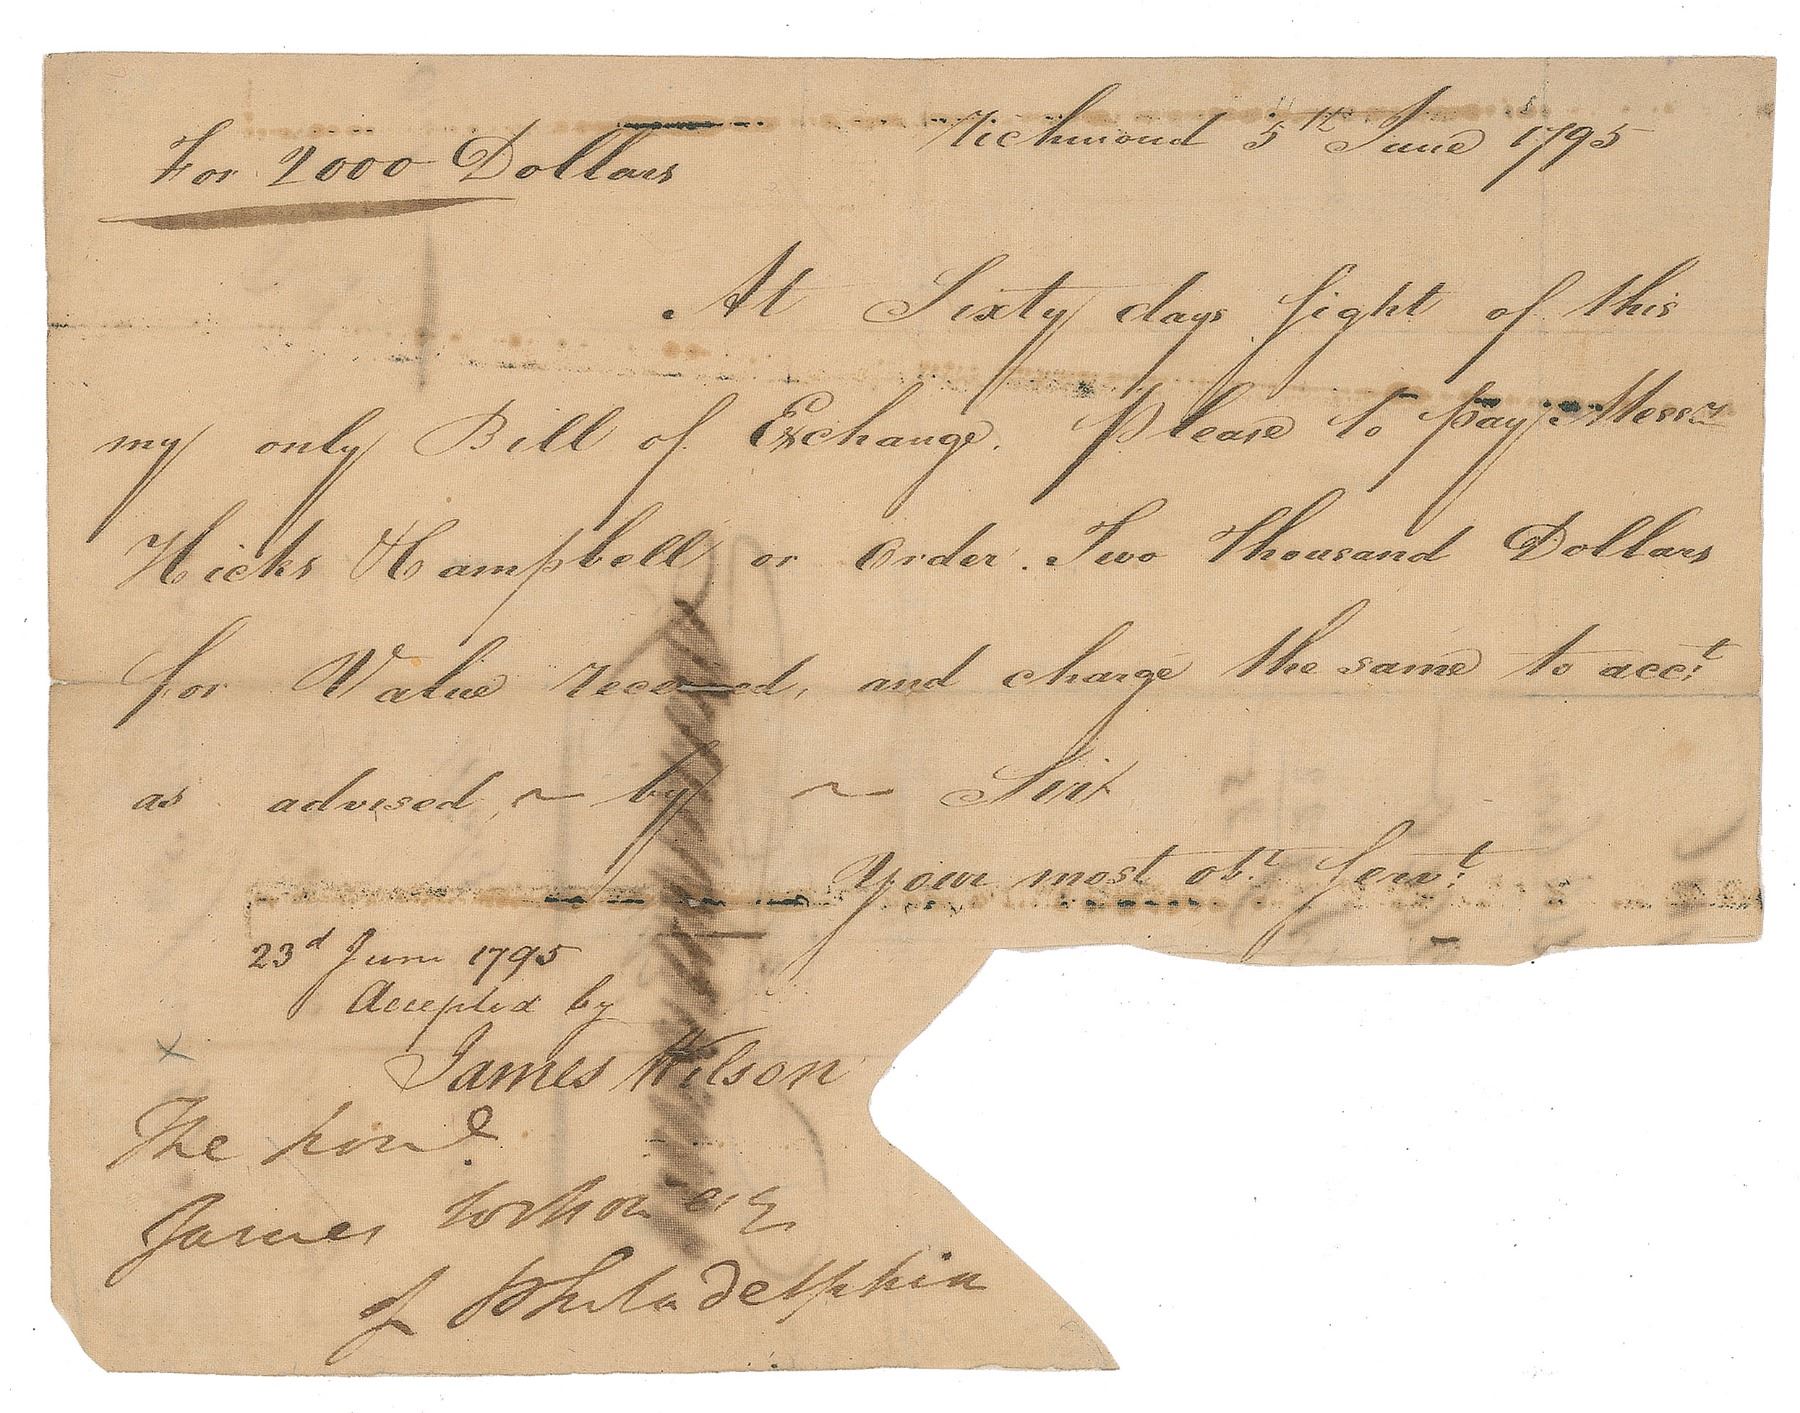 For 2000 Dollars
Richmond 5th June 1795
At Sixty days sight of this
my only Bill of Exchange. Please to pay Messrs
Hicks & Campbell or Order. Two Thousand Dollars
for Value received, and charge the same to acct.
as advised, ~ by ~ Sir
Your most obt. Servt.
23d June 1795
Accepted by
James Wilson
The honl.
James Wilson esq
of Philadelphia